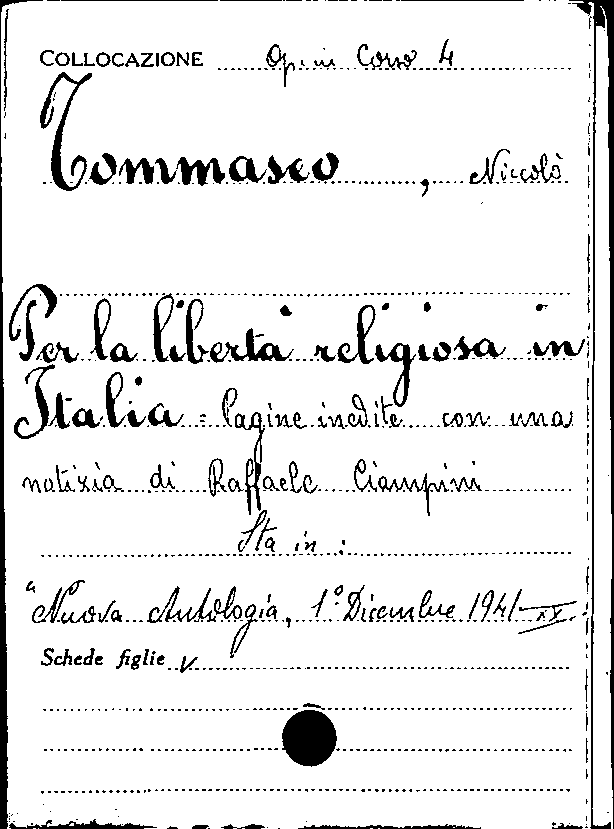 COLLOCAZIONE Op. in Corso 4
Tommaseo, Niccolò
Per la libertà religiosa in
Italia = Pagine inedite con una
notizia di Raffaele Ciampini
Sta in :
"Nuova Antologia, 1° Dicembre 1941-XX.
Schede figlie V